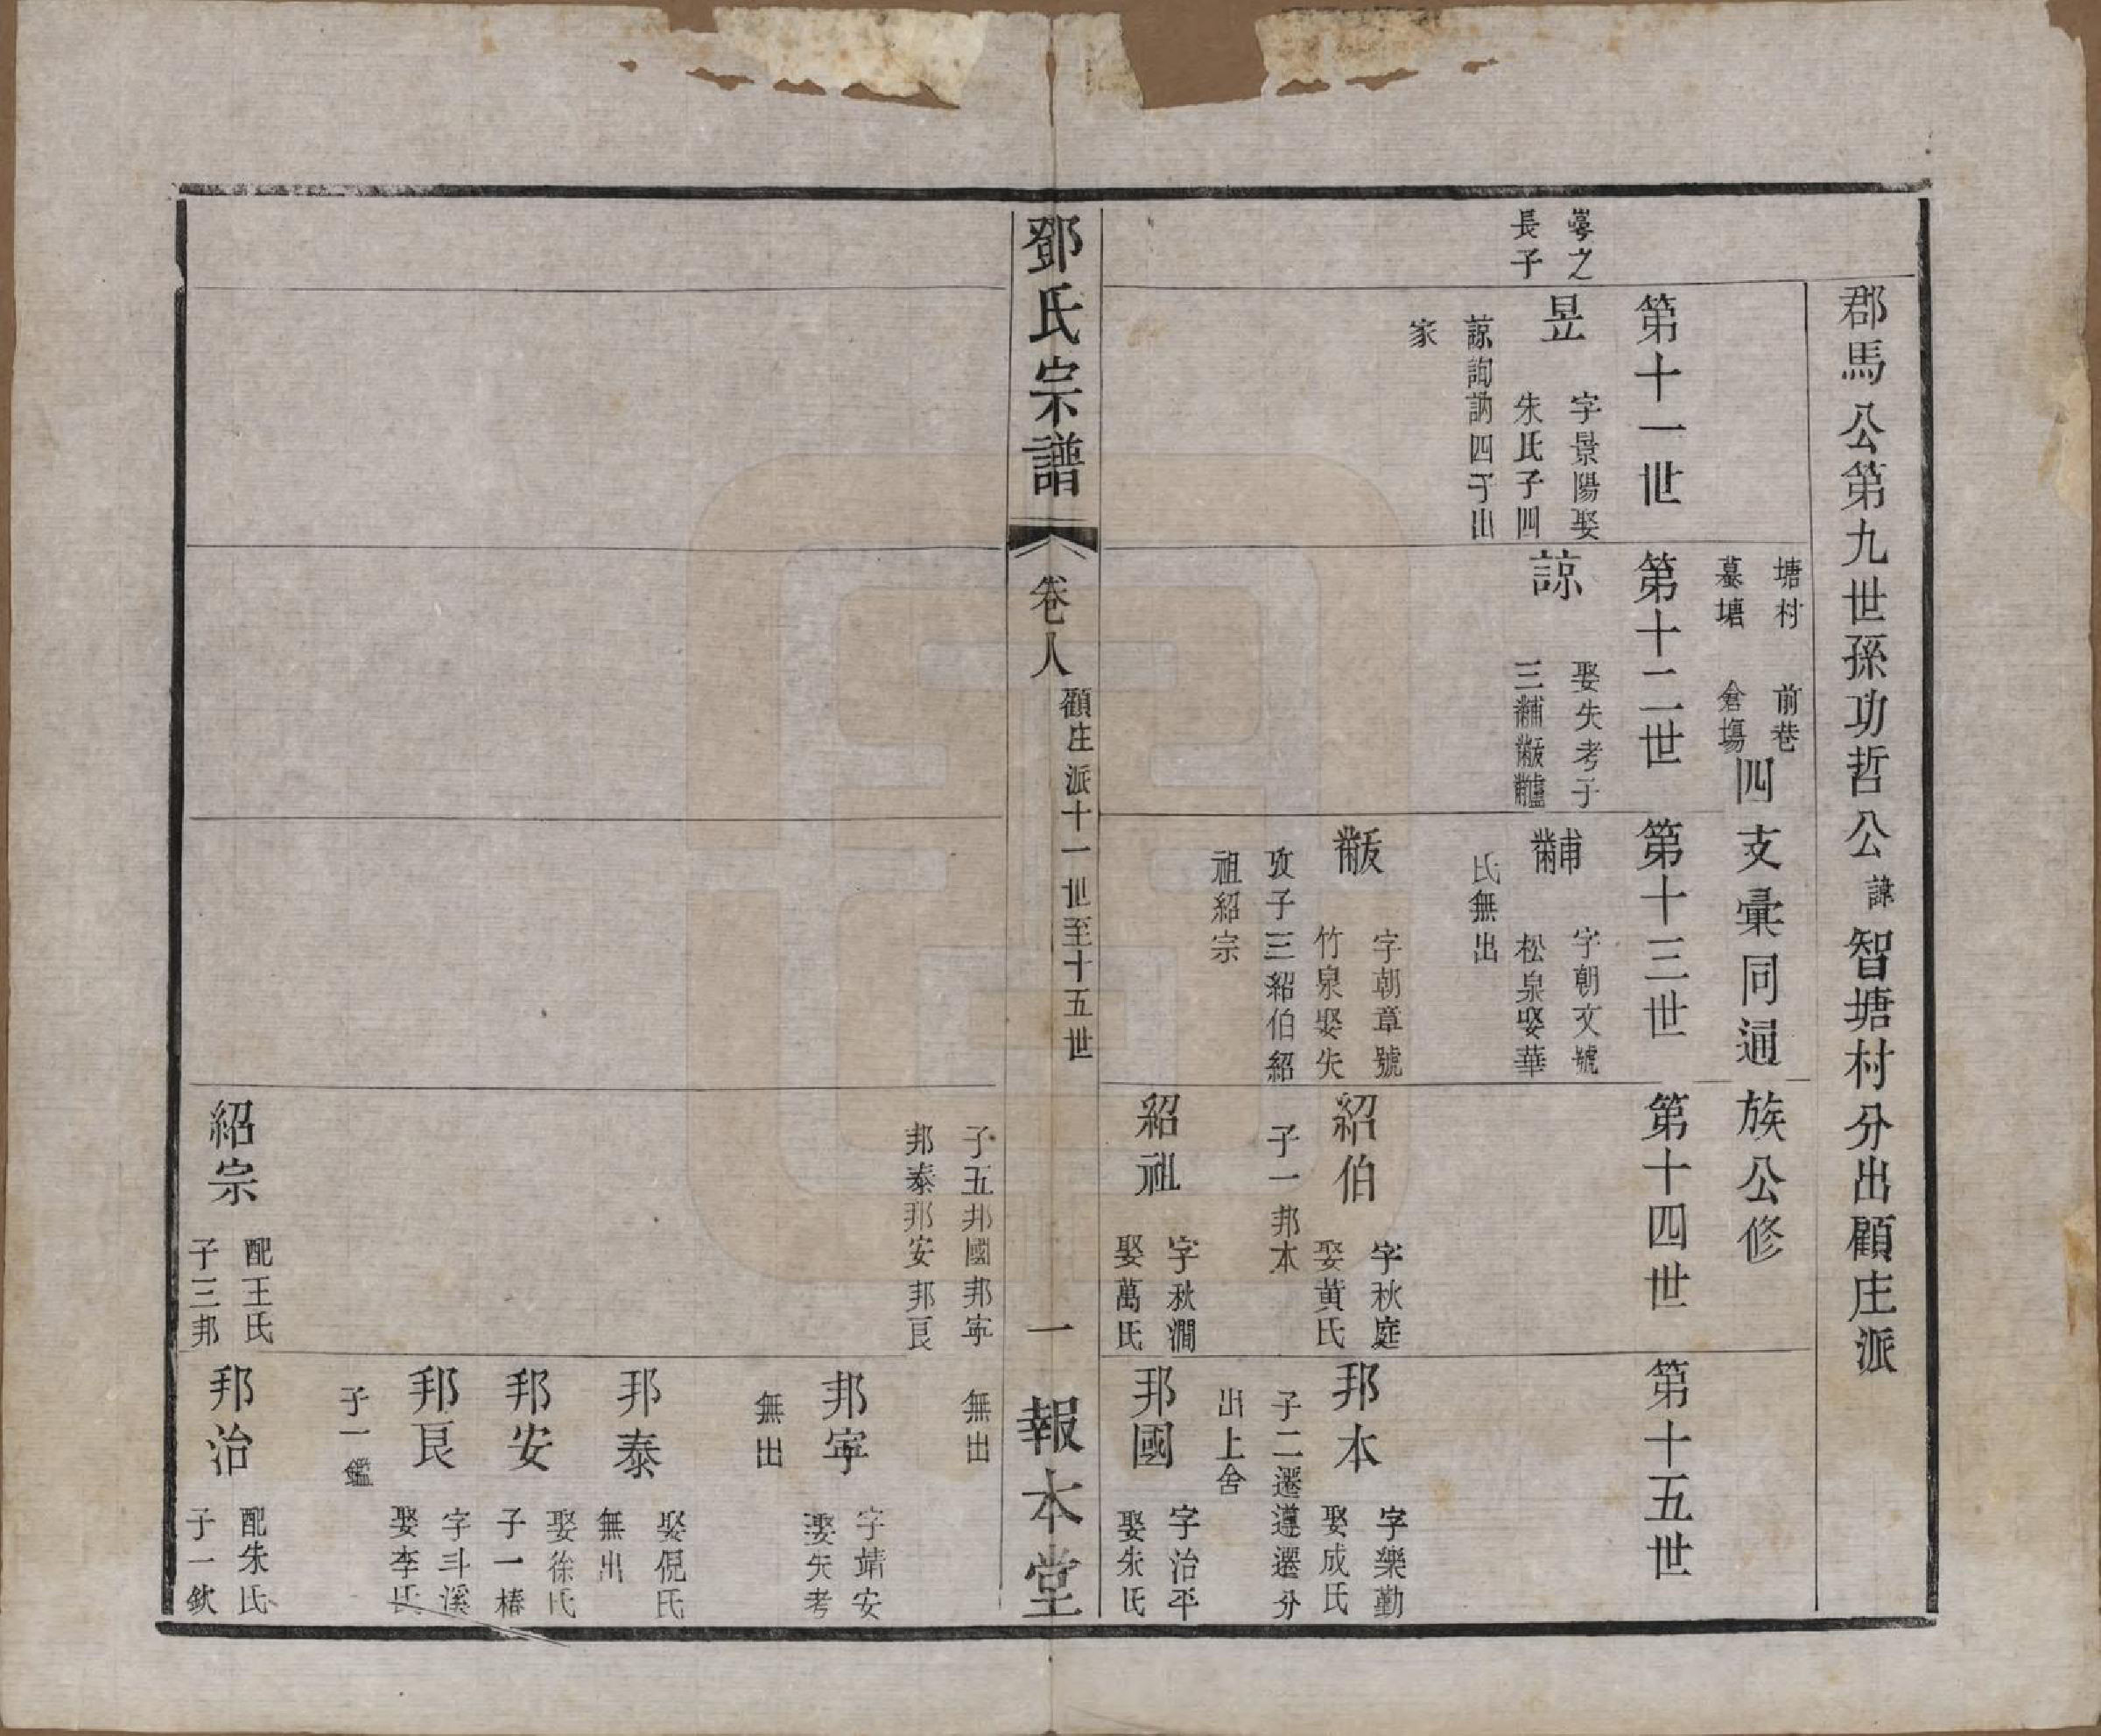 郡馬公第九世孫功哲公諱智塘村分出顧庄派
塘村 前巷
墓塘 倉塲
四支彙同通族公修
第十一世
第十二世
第十三世
第十四世
第十五世
之
長子
昱
字景陽娶
朱氏子四
諒詢訥四子出
家
諒
娶失考子
三黼黻
黼
字朝文號
松泉娶華
氏無出
黻
字朝章號
竹泉娶失
攷子三紹伯紹
祖紹宗
紹伯
字秋庭
娶黄氏
子一邦本
紹祖
字秋澗
娶萬氏
邦本
字樂勤
娶成氏
子二遷遵遷分
出上舍
邦國
字治平
娶朱氏
鄧氏宗譜
卷八
顧庄派十一世至十五世
一
報本堂
子五邦國邦寜
邦泰邦安邦艮
無出
邦寜
字靖安
娶失考
無出
邦泰
娶倪氏
無出
邦安
娶徐氏
子一椿
邦艮
字斗溪
娶李氏
子一鑑
紹宗
配王氏
子三邦
邦治
配朱氏
子一欽